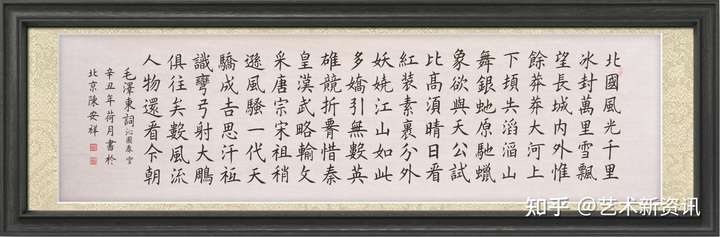 北國風光千里
冰封萬里雪飄
望長城內外惟
餘莽莽大河上
下頓失滔滔山
舞銀蛇原馳蠟
象欲與天公試
比高須晴日看
紅裝素裹分外
妖嬈江山如此
多嬌引無數英
雄競折腰惜秦
皇漢武略輸文
采唐宗宋祖稍
遜風騷一代天
驕成吉思汗祗
識彎弓射大鵰
俱往矣數風流
人物還看今朝
毛澤東詞沁園春雪
辛丑年荷月書於
北京陳安祥
知乎 @艺术新资讯